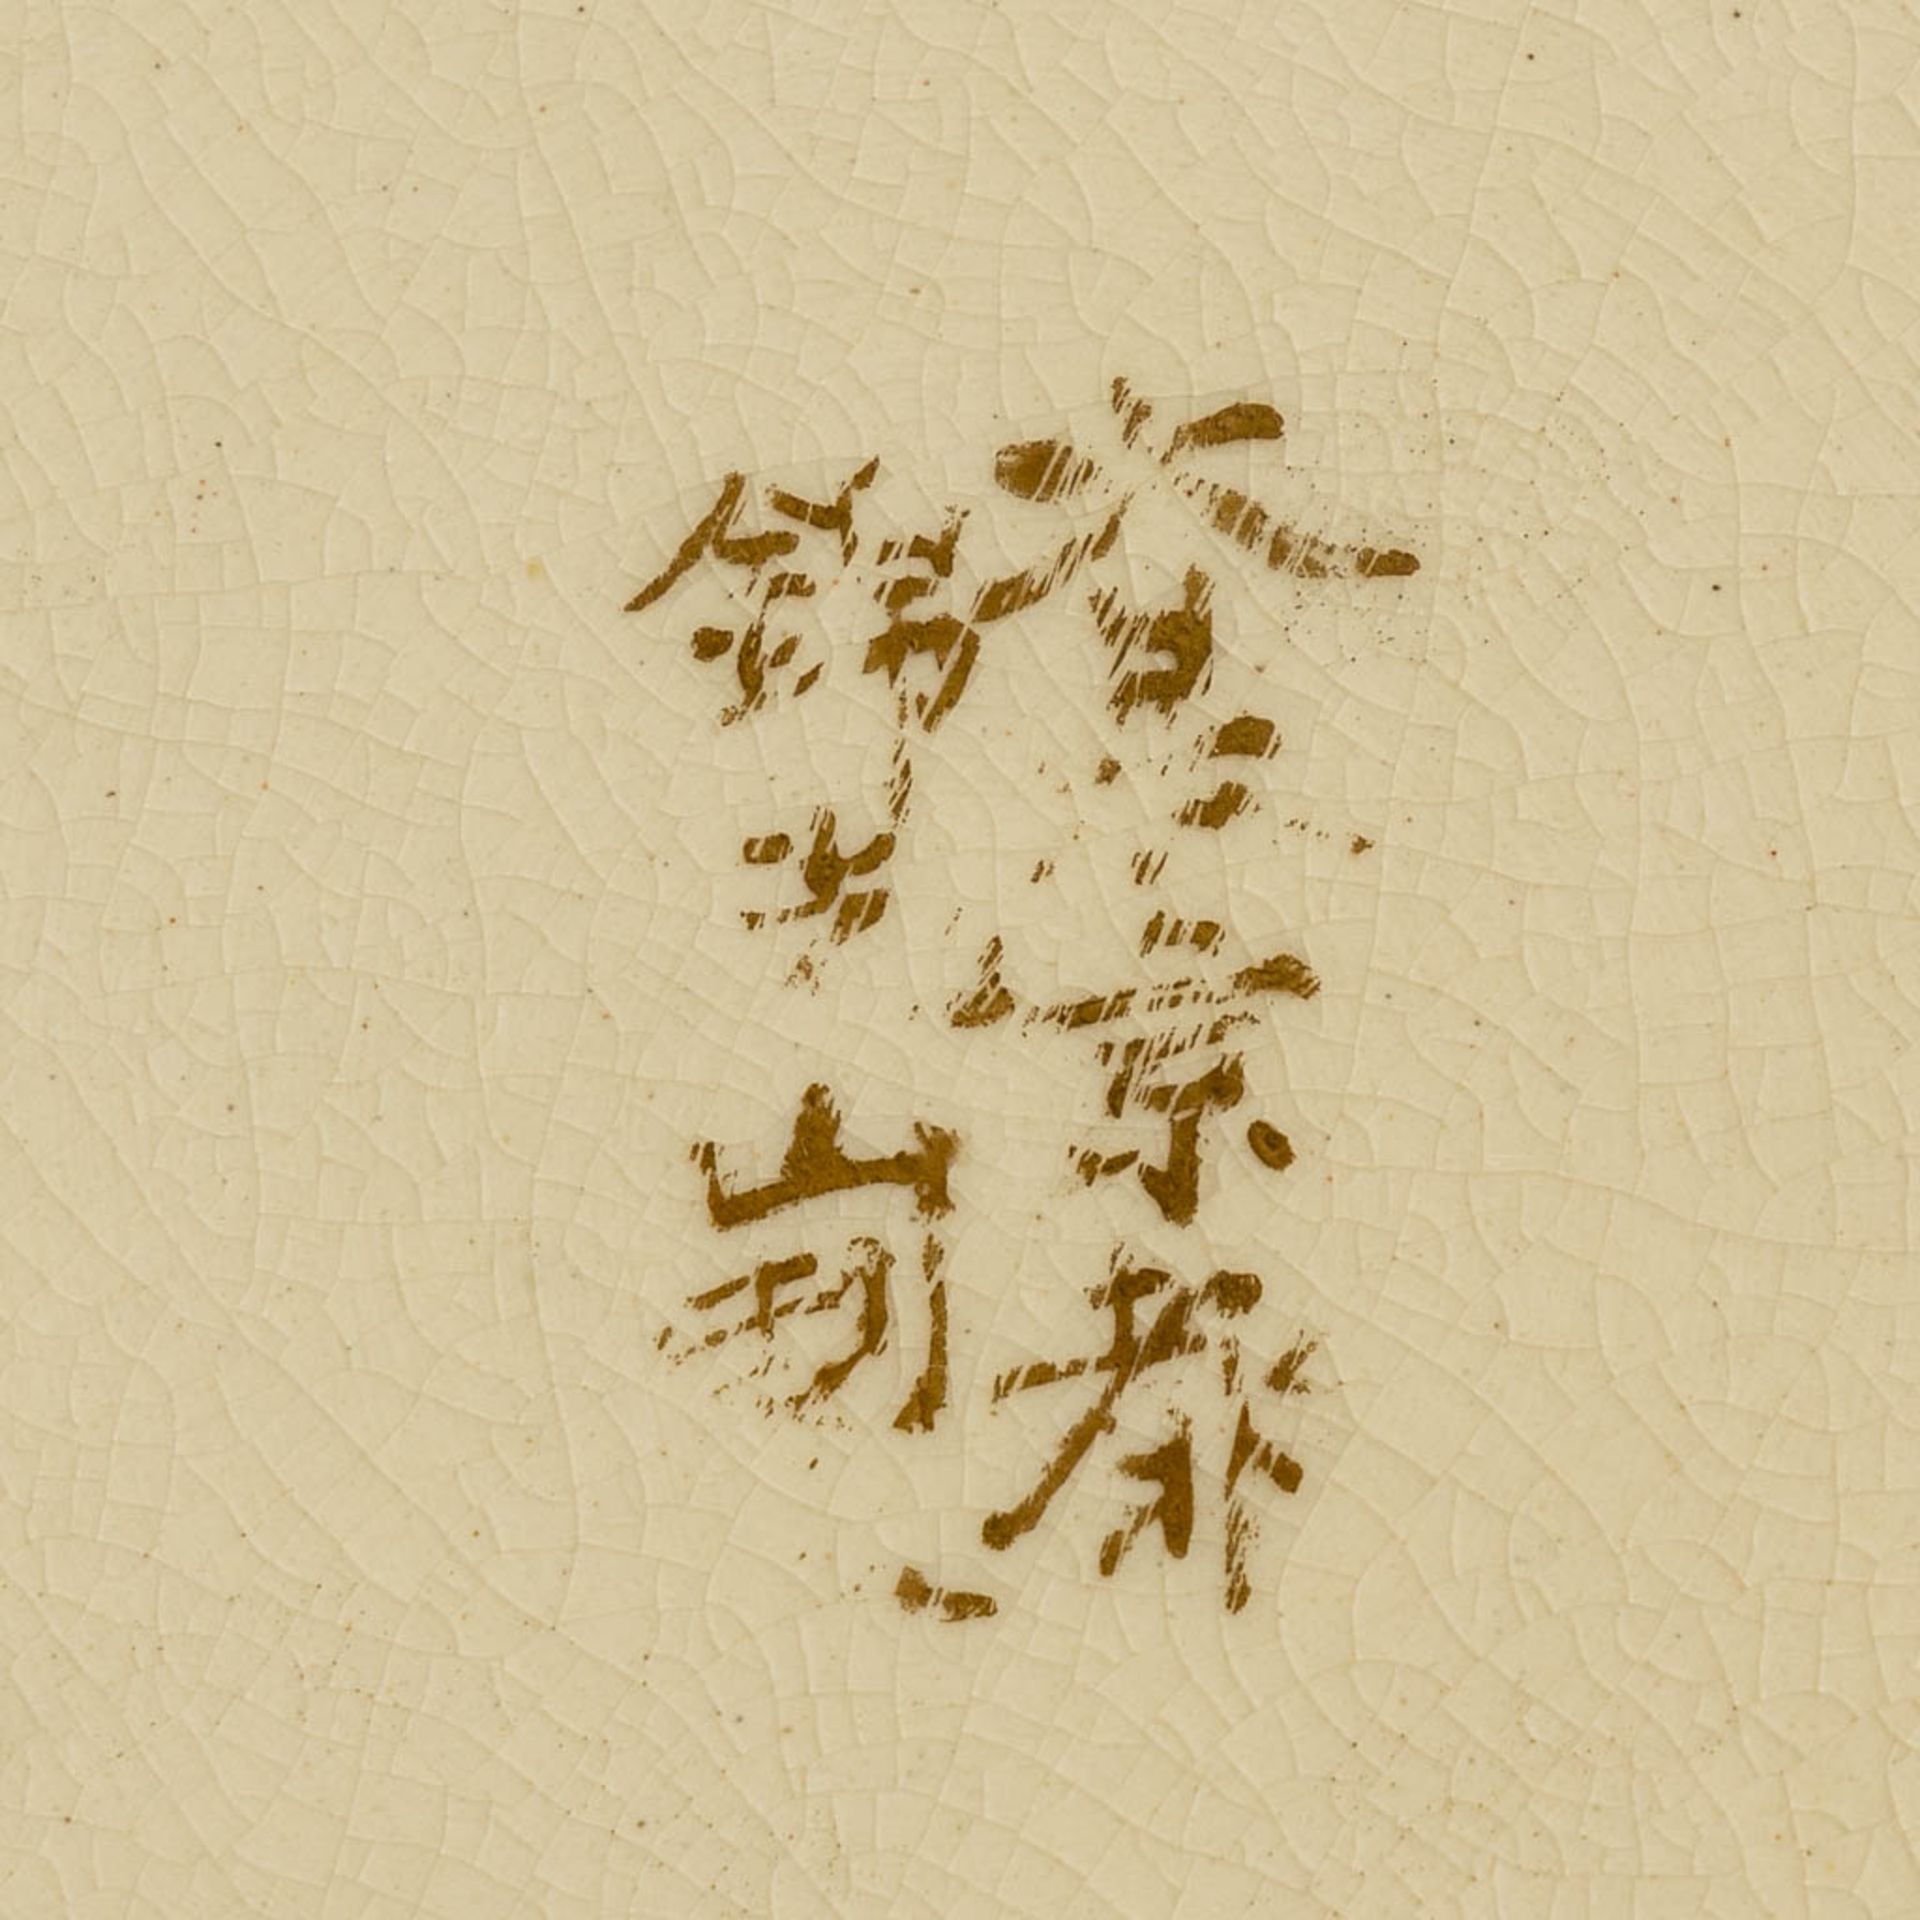 大日本京都
錦光山造